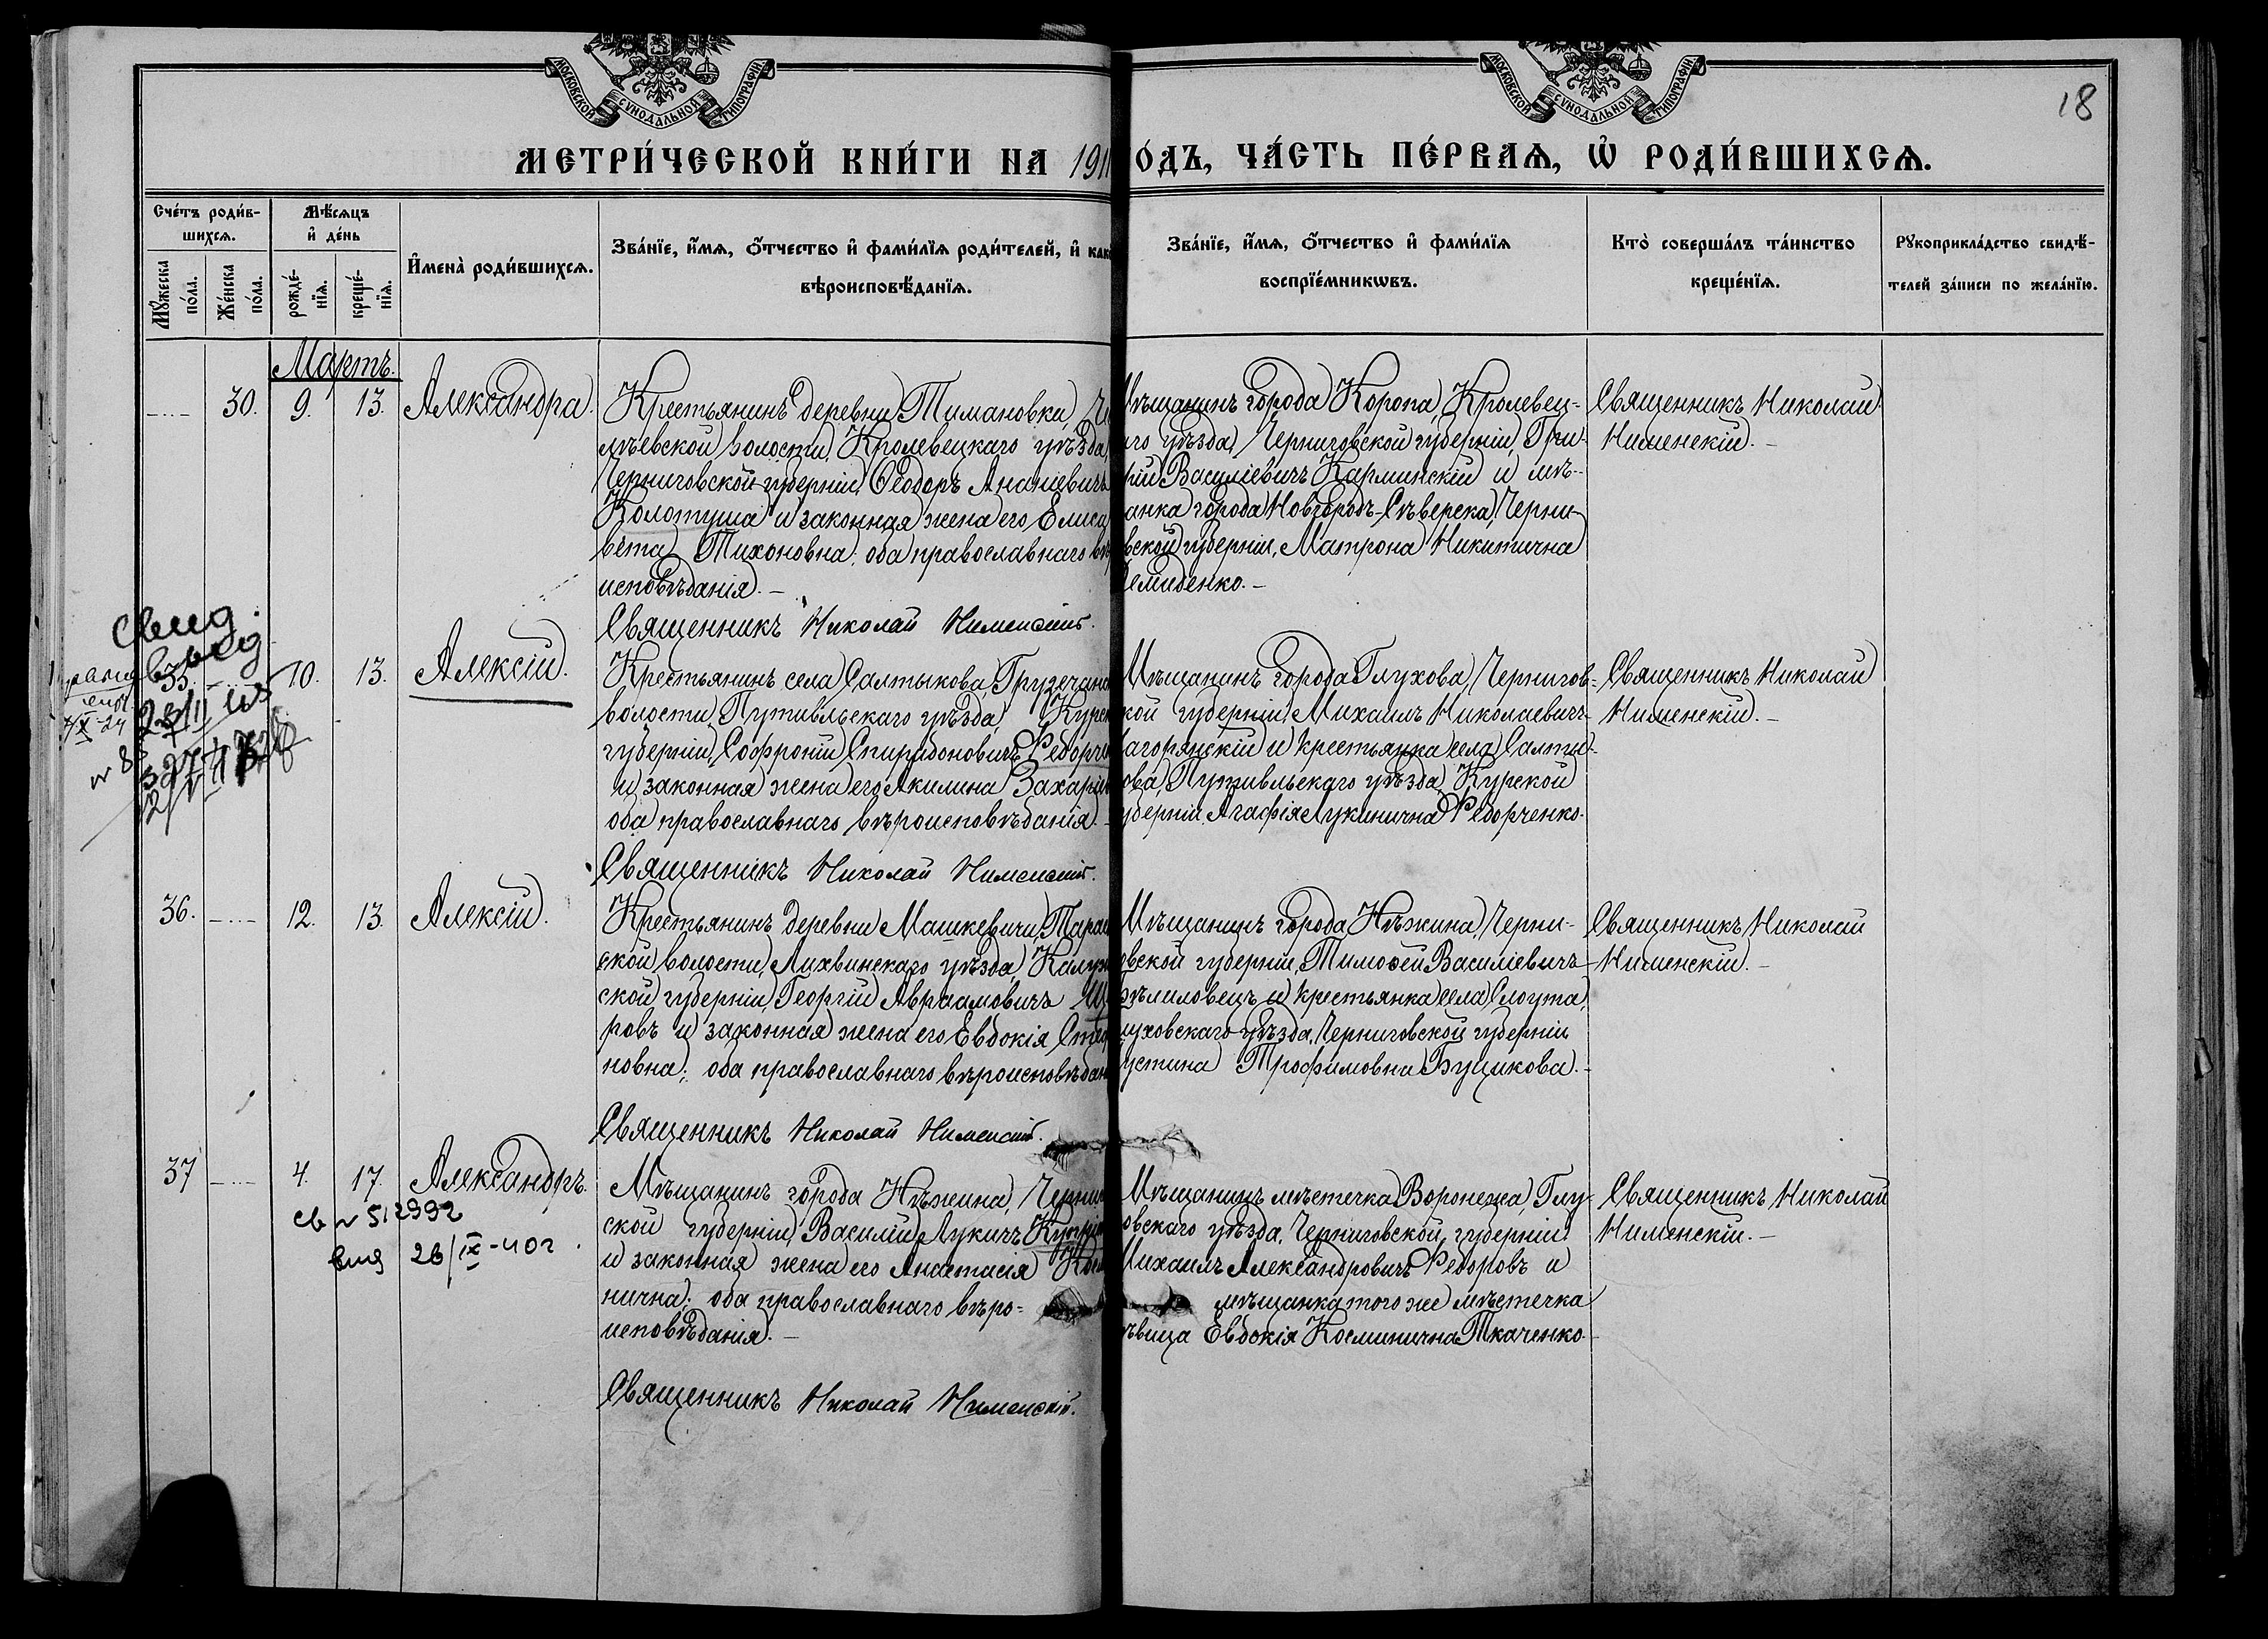 МОСКОВСКОЙ СѴНОДАЛЬНОЙ ТИПОГРАФІИ
МОСКОВСКОЙ СѴНОДАЛЬНОЙ ТИПОГРАФІИ
18
МЕТРИ́ЧЕСКОЙ КНИ́ГИ НА 191
ОДЪ, ЧА́СТЬ ПЕ́РВАѦ, Ѡ҆ РОДИ́ВШИХСѦ.
Сче́тъ роди́в-
шихсѧ.
Мꙋ́жеска по́ла.
Же́нска по́ла.
Мѣ́сѧцъ
и҆ де́нь
рожде́-
нїѧ.
креще́-
нїѧ.
И҆мена̀ роди́вшихсѧ.
Зва́нїе, и҆́мѧ, ѻ҆́тчество и҆ фами́лїѧ роди́телей, и҆ как
вѣроисповѣ́данїѧ.
Зва́нїе, и҆́мѧ, ѻ҆́тчество и҆ фами́лїѧ
воспрїе́мникѡвъ.
Кто̀ соверша́лъ та́инство
креще́нїѧ.
Рꙋкоприкла́дство свидѣ́-
телей за́писи по жела́нїю.
Мартъ.
30. 9. 13. Александра.
Крестьянинъ деревни Тимановки,
волости, Кролевецкаго уѣзда,
Черниговской губерніи, Ѳеодоръ Ананіевичъ
Колотуша и законная жена его Елиса
вета Тихоновна; оба православнаго вѣ
исповѣданія.–
Священникъ Николай Нименскій.
ѣщанинъ города Коропа, Кролевец-
го уѣзда, Черниговской губерніи, Гри-
рій Василіевичъ Карминскій и мѣ-
анка города Новгородъ-Сѣверска, Черни-
вской губерніи, Матрона Никитична
емиденко.–
Священникъ Николай
Нименскій.–
Свид.
35. 10. 13. Алексій.
Крестьянинъ села Салтыкова,
волости, Путивльскаго уѣзда, Курск
губерніи, Софроній Спиридоновичъ
и законная жена его Акилина Захарі
оба православнаго вѣроисповѣданія.–
Священникъ Николай Нименскій.
Мѣщанинъ города Глухова, Чернигов-
кой губерніи, Михаилъ Николаевичъ
агорянскій и крестьянка села Салты-
ова, Путивльскаго уѣзда, Курской
уберніи Агафія Лукинична Ѳедорченко.
Священникъ Николай
Нименскій.–
36. 12. 13. Алексій.
Крестьянинъ деревни Машкевичи,
ской волости, Лихвинскаго уѣзда, Калуж
ской губерніи, Георгій Авраамовичъ
ровъ и законная жена его Евдокія Стеф
новна; оба православнаго вѣроисповѣдан
Священникъ Николай Нименскій.
Мѣщанинъ города Нѣжина, Черни-
овской губерніи, Тимоѳей Василіевичъ
ѣлиловецъ и крестьянка села Слоута,
луховскаго уѣзда, Черниговской губерніи
устина Трофимовна Буцикова.–
Священникъ Николай
Нименскій.–
37 4. 17. Александръ.
св № 512992
вид 26/IX-40г.
Мѣщанинъ города Нѣжина, Черни
ской губерніи, Василій Лукичъ
и законная жена его Анастасія Кос
нична; оба православнаго вѣро-
исповѣданія.–
Священникъ Николай Нименскій.
Мѣщанинъ мѣстечка Воронежа, Глу-
овскаго уѣзда, Черниговской губерніи
Михаилъ Александровичъ Ѳедоровъ и
мѣщанка того же мѣстечка
ѣвица Евдокія Косминична Ткаченко.–
Священникъ Николай
Нименскій.–